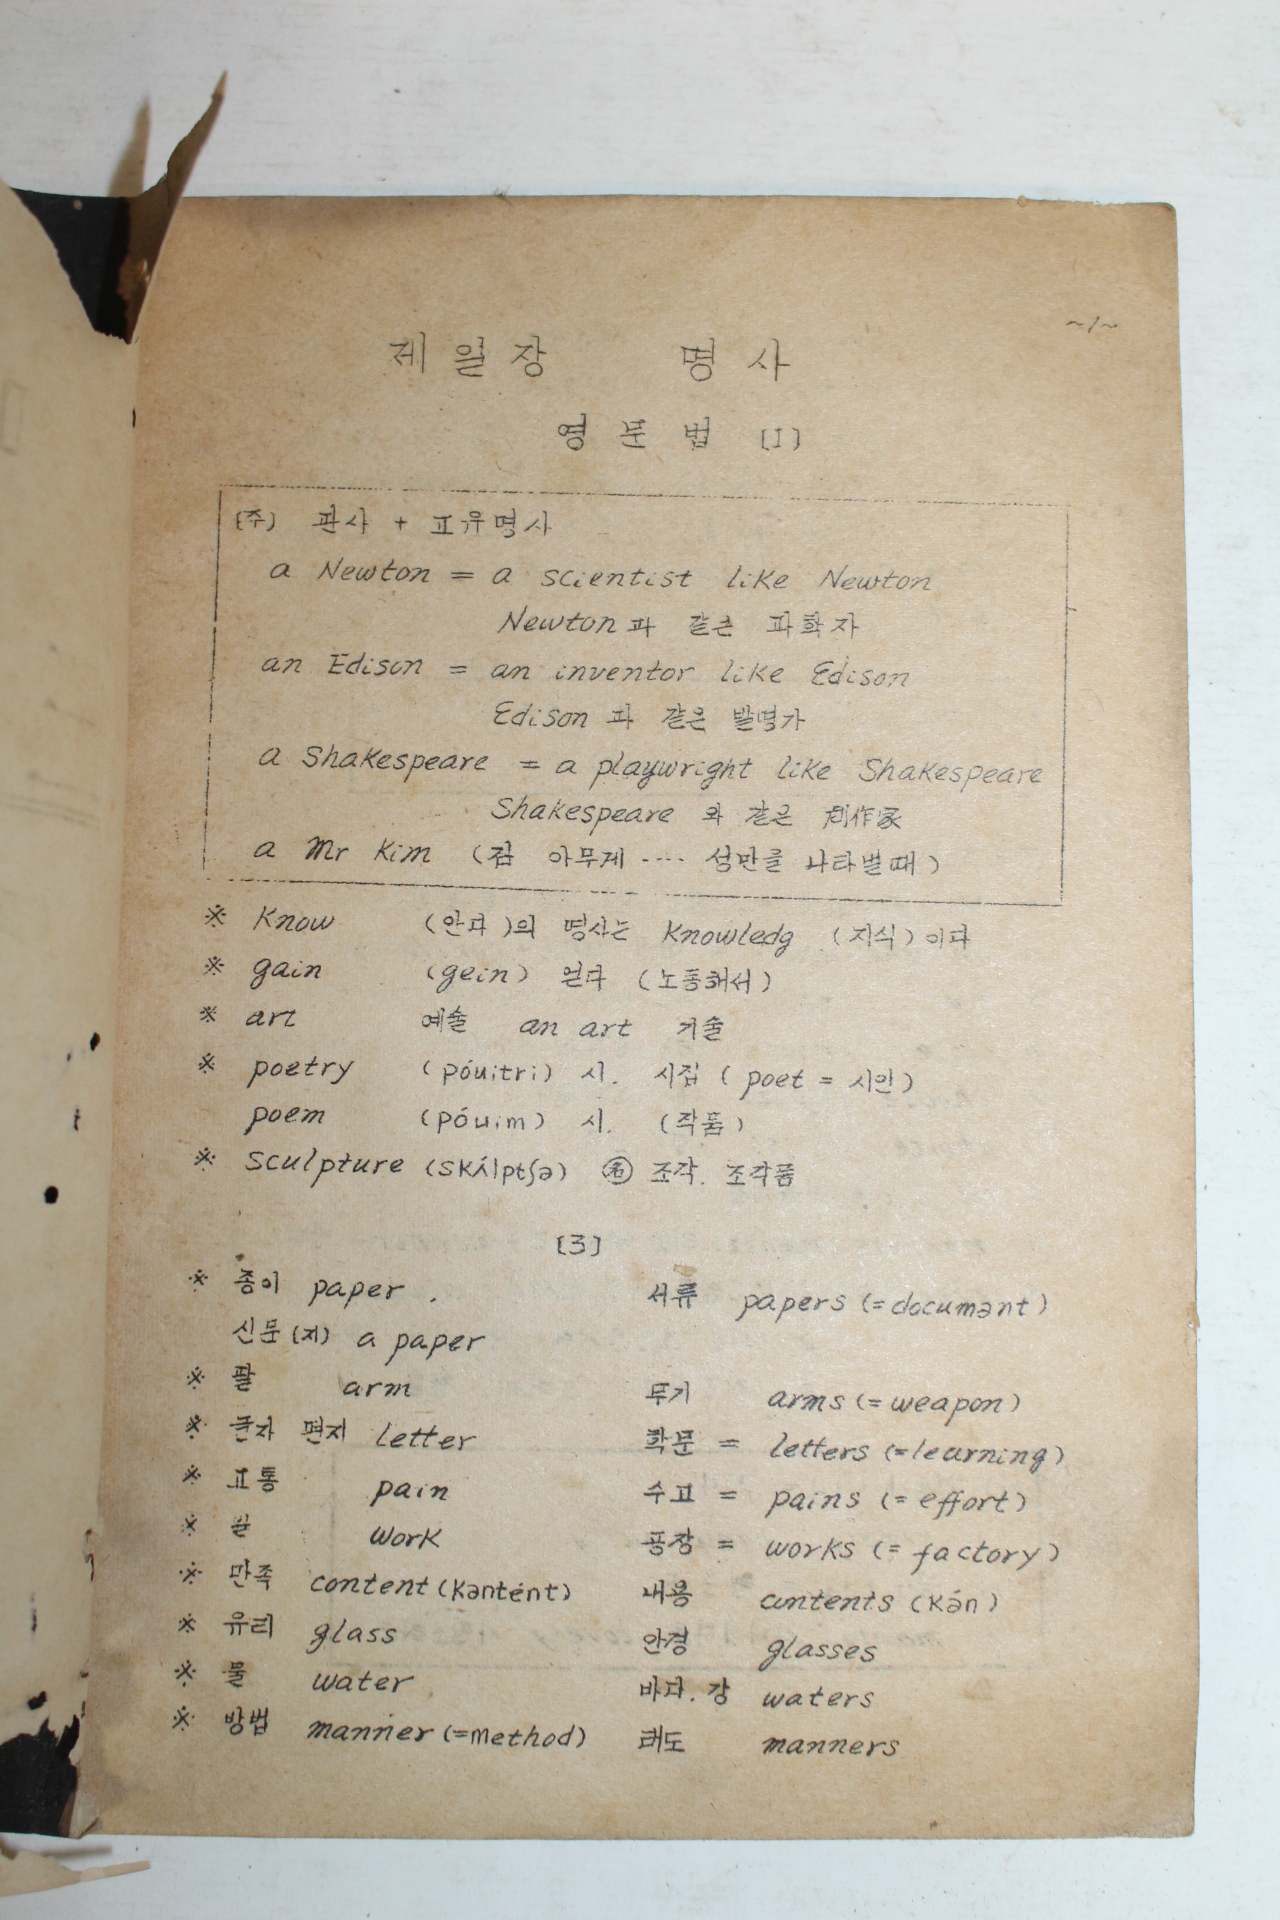 ~1~
제 일 장 명 사
영 문 법 [I]
(주) 관사 + 고유명사
a Newton = a scientist like Newton
Newton과 같은 과학자
an Edison = an inventor like Edison
Edison 과 같은 발명가
a Shakespeare = a playwright like Shakespeare
Shakespeare 와 같은 劇作家
a Mr Kim (김 아무개 .... 성만을 나타낼때)
※ Know (안다)의 명사는 Knowledg (지식)이다
※ gain (gein) 얻다 (노동해서)
※ art 예술 an art 기술
※ poetry (póuitri) 시. 시집 (poet = 시인)
poem (póuim) 시. (작품)
※ sculpture (skʌ́lptʃə) ㊔ 조각. 조각품
[3]
※ 종이 paper . 서류 papers (=documənt)
신문(지) a paper
※ 팔 arm 무기 arms (= weapon)
※ 글자 편지 letter 학문 = letters (=learning)
※ 고통 pain 수고 = pains (= effort)
※ 일 work 공장 = works (= factory)
※ 만족 content (Kəntént) 내용 contents (Kán)
※ 유리 glass 안경 glasses
※ 물 water 바다. 강 waters
※ 방법 manner (=method) 태도 manners